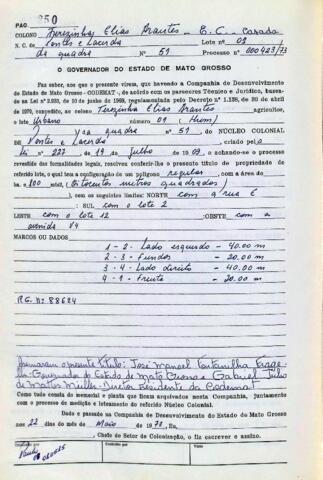 PAG. 250
COLONO Terezinha Elias Arantes - E. C. Casada
N. C. de Pontes e Lacerda Lote nº 01
da quadra Nº 51 Processo nº 000423/73
O GOVERNADOR DO ESTADO DE MATO GROSSO
Faz saber, aos que o presente virem, que havendo a Companhia de Desenvolvimento
do Estado de Mato Grosso - CODEMAT -, de acordo com os pareceres Técnico e Jurídico, basea-
da na Lei nº 2.933, de 10 de junho de 1969, regulamentada pelo Decreto nº 1.138, de 30 de abril
de 1970, expedido ao colono Terezinha Elias Arantes agricultor,
o lote Urbano número 01 (Hum)
quadra nº 51 do NÚCLEO COLONIAL
Pontes e Lacerda criado pela
Lei nº 227 de 19 de Julho de 19 e achando-se o processo
revestido das formalidades legais, resolveu conferir-lhe o presente título de propriedade do
referido lote, o qual tem a configuração de um polígono regular com a área de
ha. e 800 mts2, (Oitocentos metros quadrados)
), com os seguintes limites: NORTE com a rua 6
: SUL com o lote 2
LESTE com o lote 12 :OESTE com a
avenida
MARCOS OU DADOS
1 - 2 - Lado esquerdo - 40.00 m
2 - 3 - Fundos - 20.00 m
3 - 4 - Lado direito - 40.00 m
4 - 1 - Frente - 20.00 m
P.G. Nº 88624
Assinaram o presente título: José Manoel Fontanilha Frage-
lli-Governador do Estado de Mato Grosso e Gabriel Júlio
de Mattos Müller - Diretor Presidente da Codemat
Como tudo consta do memorial e planta que ficam arquivados nesta Companhia, juntamente
com o processo de medição e loteamento do referido Núcleo Colonial.
Dado e passado na Companhia de Desenvolvimento do Estado de Mato Grosso
aos 22 dias do mês de Maio de 1973. Eu,
, Chefe do Setor de Colonização, o fiz escrever e assino.